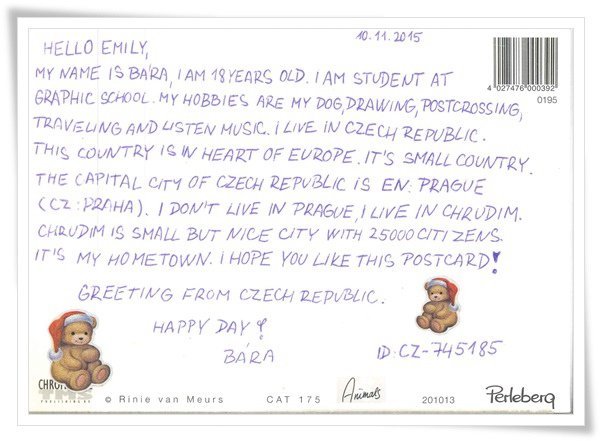 10.11.2015
HELLO EMILY,
MY NAME IS BÁRA, I AM 18 YEARS OLD. I AM STUDENT AT
GRAPHIC SCHOOL. MY HOBBIES ARE MY DOG, DRAWING, POSTCROSSING,
TRAVELING AND LISTEN MUSIC. I LIVE IN CZECH REPUBLIC.
THIS COUNTRY IS IN HEART OF EUROPE. IT'S SMALL COUNTRY.
THE CAPITAL CITY OF CZECH REPUBLIC IS EN: PRAGUE
(CZ: PRAHA). I DON'T LIVE IN PRAGUE, I LIVE IN CHRUDIM.
CHRUDIM IS SMALL BUT NICE CITY WITH 25000 CITIZENS.
IT'S MY HOMETOWN. I HOPE YOU LIKE THIS POSTCARD!
GREETING FROM CZECH REPUBLIC.
HAPPY DAY!
BÁRA
ID: CZ-745185
4 027476 000392
0195
TMS
© Rinie van Meurs CAT 175 Animals 201013 Perleberg